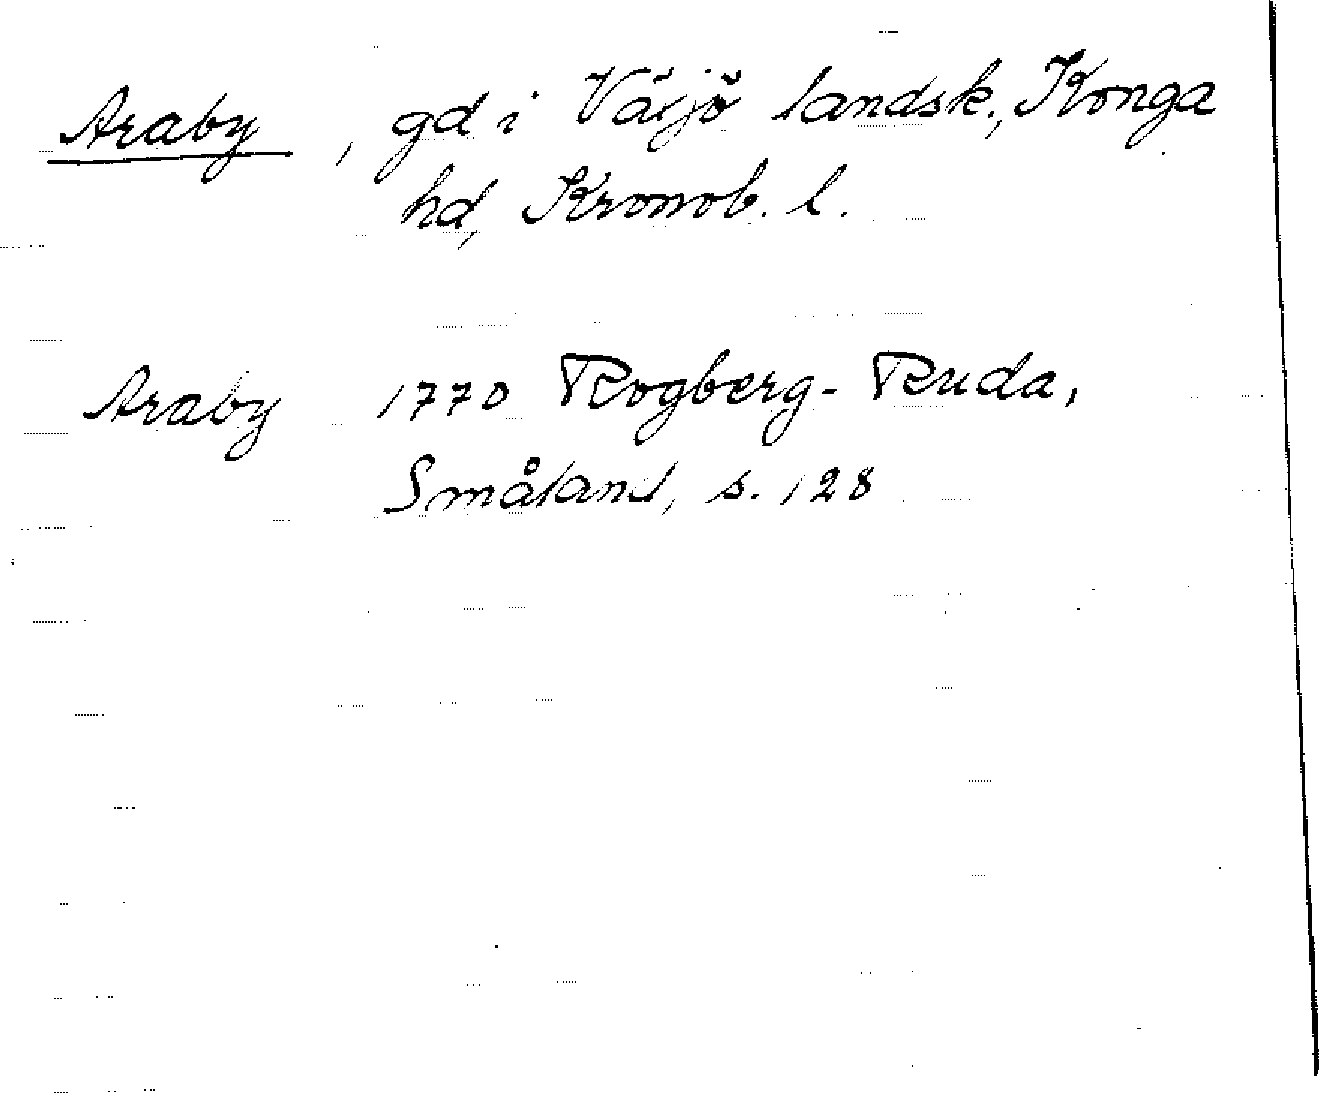 Araby, gd i Växjö landsk., Konga
hd, Kronob. l.
Araby 1770 Rogberg-Ruda,
Småland, s. 128